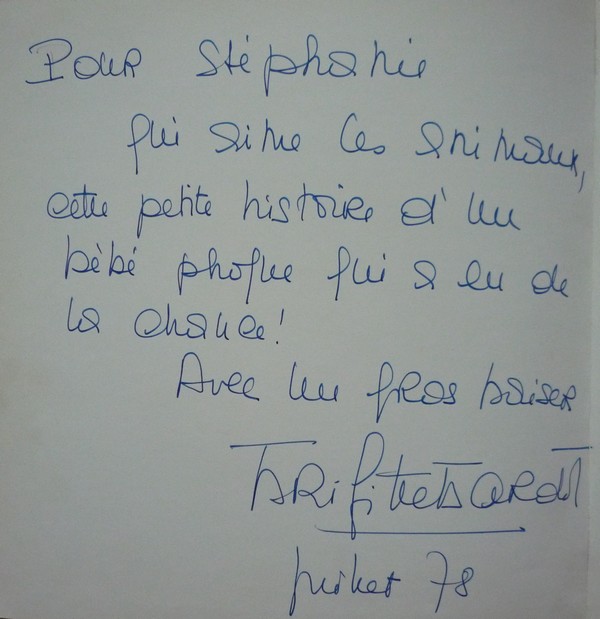 Pour Stéphanie
qui aime les animaux,
cette petite histoire d'un
bébé phoque qui a eu de
la chance!
Avec un gros baiser
Brigitte Bardot
juillet 78